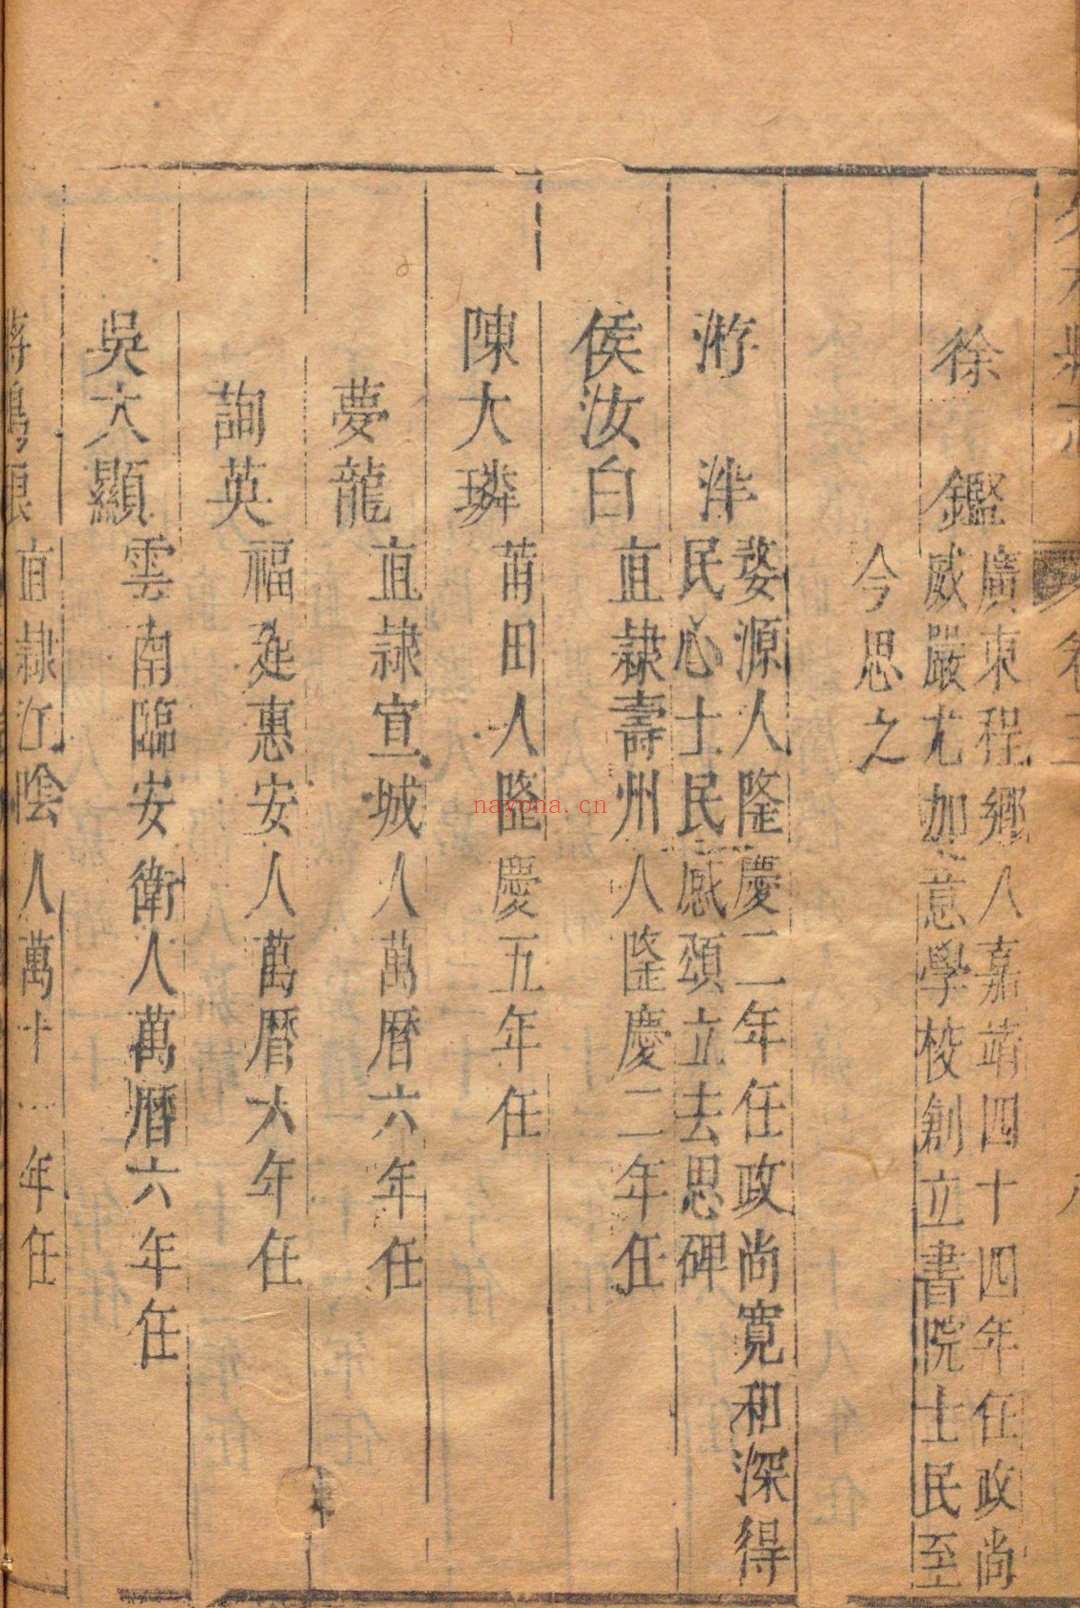 卷三
徐鑑
廣東程鄉人嘉靖四十四年任政尚
威嚴尤加意學校創立書院士民至
今思之
游泮
婺源人隆慶二年任政尚寬和深得
民心士民感頌立去思碑
侯汝白
直隸壽州人隆慶二年任
陳大璘
莆田人隆慶五年任
夢龍
直隸宣城人萬曆六年任
詢英
福建惠安人萬曆六年任
吳大顯
雲南臨安衛人萬曆六年任
直隸江陰人萬十一年任
nayona.cn